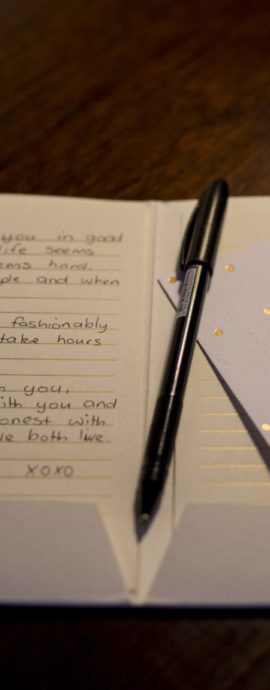 you in good
life seems
ems hard.
ple and when
fashionably
take hours
you,
ith you and
onest with
ve both live.
xoxo